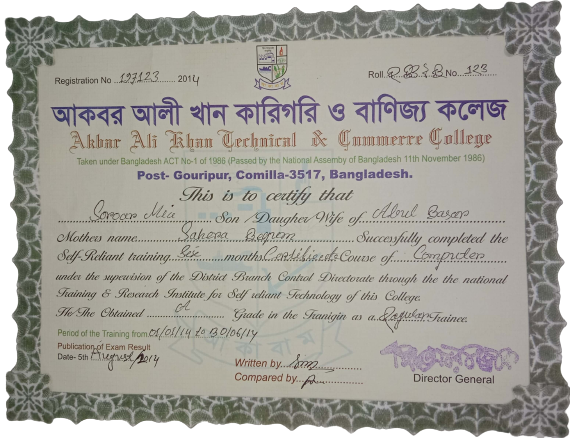 Registration No 197123 2014
Roll. No. 123
আকবর আলী খান কারিগরি ও বাণিজ্য কলেজ
Akbar Ali Khan Technical & Cummerre College
Taken under Bangladesh ACT No-1 of 1986 (Passed by the National Assemby of Bangladesh 11th November 1986)
Post- Gouripur, Comilla-3517, Bangladesh.
This is to certify that
Mia Son /Daugher/Wife of
Mothers name Begom Successfully completed the
Self-Reliant training Six months Certificate Course of Computer
under the supervision of the District Branch Control Directorate through the the national
Training & Research Institute for Self reliant Technology of this College.
He/The Obtained A Grade in the Tranigin as a Regular Trainee.
Period of the Training from 01/01/14 to 30/06/14
Publication of Exam Result
Date- 5th August/2014
Written by
Compared by
Director General